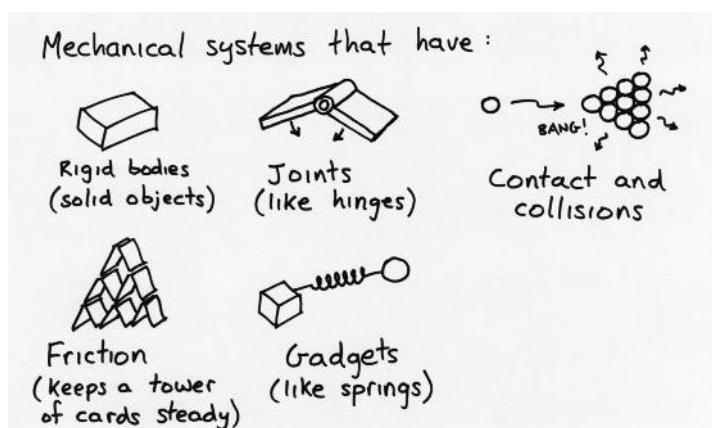 Mechanical systems that have:
Rigid bodies
(solid objects)
Joints
(like hinges)
BANG!
Contact and
collisions
Friction
(keeps a tower
of cards steady)
Gadgets
(like springs)